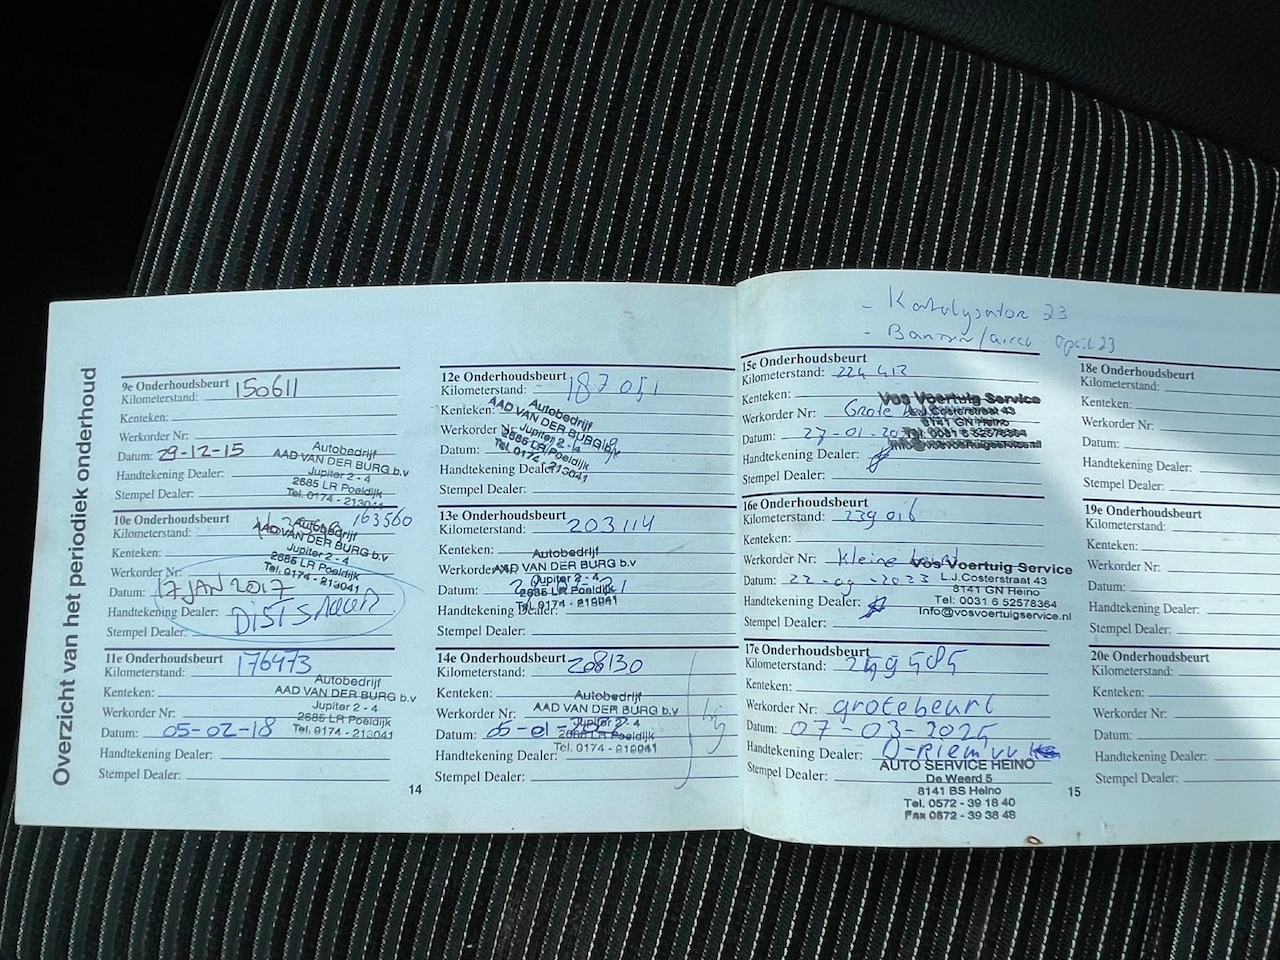 Overzicht van het periodiek onderhoud
9e Onderhoudsbeurt
Kilometerstand: 150611
Kenteken:
Werkorder Nr:
Datum: 29-12-15
Handtekening Dealer:
Stempel Dealer:
Autobedrijf
AAD VAN DER BURG b.v
Jupiter 2 - 4
2685 LR Poeldijk
Tel. 0174 - 213041
10e Onderhoudsbeurt
Kilometerstand: 163560
Kenteken:
Werkorder Nr:
Datum: 17 JAN 2017
Handtekening Dealer:
Stempel Dealer:
Autobedrijf
AAD VAN DER BURG b.v
Jupiter 2 - 4
2685 LR Poeldijk
Tel. 0174 - 213041
11e Onderhoudsbeurt
Kilometerstand: 176473
Kenteken:
Werkorder Nr:
Datum: 05-02-18
Handtekening Dealer:
Stempel Dealer:
Autobedrijf
AAD VAN DER BURG b.v
Jupiter 2 - 4
2685 LR Poeldijk
Tel. 0174 - 213041
14
12e Onderhoudsbeurt
Kilometerstand: 187051
Kenteken:
Werkorder Nr:
Datum:
Handtekening Dealer:
Stempel Dealer:
Autobedrijf
AAD VAN DER BURG b.v
Jupiter 2 - 4
2685 LR Poeldijk
Tel. 0174 - 213041
13e Onderhoudsbeurt
Kilometerstand: 203114
Kenteken:
Werkorder Nr:
Datum:
Handtekening Dealer:
Stempel Dealer:
Autobedrijf
AAD VAN DER BURG b.v
Jupiter 2 - 4
2685 LR Poeldijk
Tel. 0174 - 213041
14e Onderhoudsbeurt
Kilometerstand: 208130
Kenteken:
Werkorder Nr:
Datum: 05-01-
Handtekening Dealer:
Stempel Dealer:
Autobedrijf
AAD VAN DER BURG b.v
Jupiter 2 - 4
2685 LR Poeldijk
Tel. 0174 - 213041
- Katalysator 23
- April 23
15e Onderhoudsbeurt
Kilometerstand: 224 412
Kenteken:
Werkorder Nr: Grote
Datum: 27-01-
Handtekening Dealer:
Stempel Dealer:
Vos Voertuig Service
L.J.Costerstraat 43
8141 GN Heino
Tel: 0031 6 52578364
Info@vosvoertuigservice.nl
16e Onderhoudsbeurt
Kilometerstand: 239 016
Kenteken:
Werkorder Nr: Kleine beurt
Datum: 22-09-2023
Handtekening Dealer:
Stempel Dealer:
Vos Voertuig Service
L.J.Costerstraat 43
8141 GN Heino
Tel: 0031 6 52578364
Info@vosvoertuigservice.nl
17e Onderhoudsbeurt
Kilometerstand: 249 585
Kenteken:
Werkorder Nr: grote beurt
Datum: 07-03-2025
Handtekening Dealer:
Stempel Dealer:
AUTO SERVICE HEINO
De Weerd 5
8141 BS Heino
Tel. 0572 - 39 18 40
Fax 0572 - 39 38 48
15
18e Onderhoudsbeurt
Kilometerstand:
Kenteken:
Werkorder Nr:
Datum:
Handtekening Dealer:
Stempel Dealer:
19e Onderhoudsbeurt
Kilometerstand:
Kenteken:
Werkorder Nr:
Datum:
Handtekening Dealer:
Stempel Dealer:
20e Onderhoudsbeurt
Kilometerstand:
Kenteken:
Werkorder Nr:
Datum:
Handtekening Dealer:
Stempel Dealer: